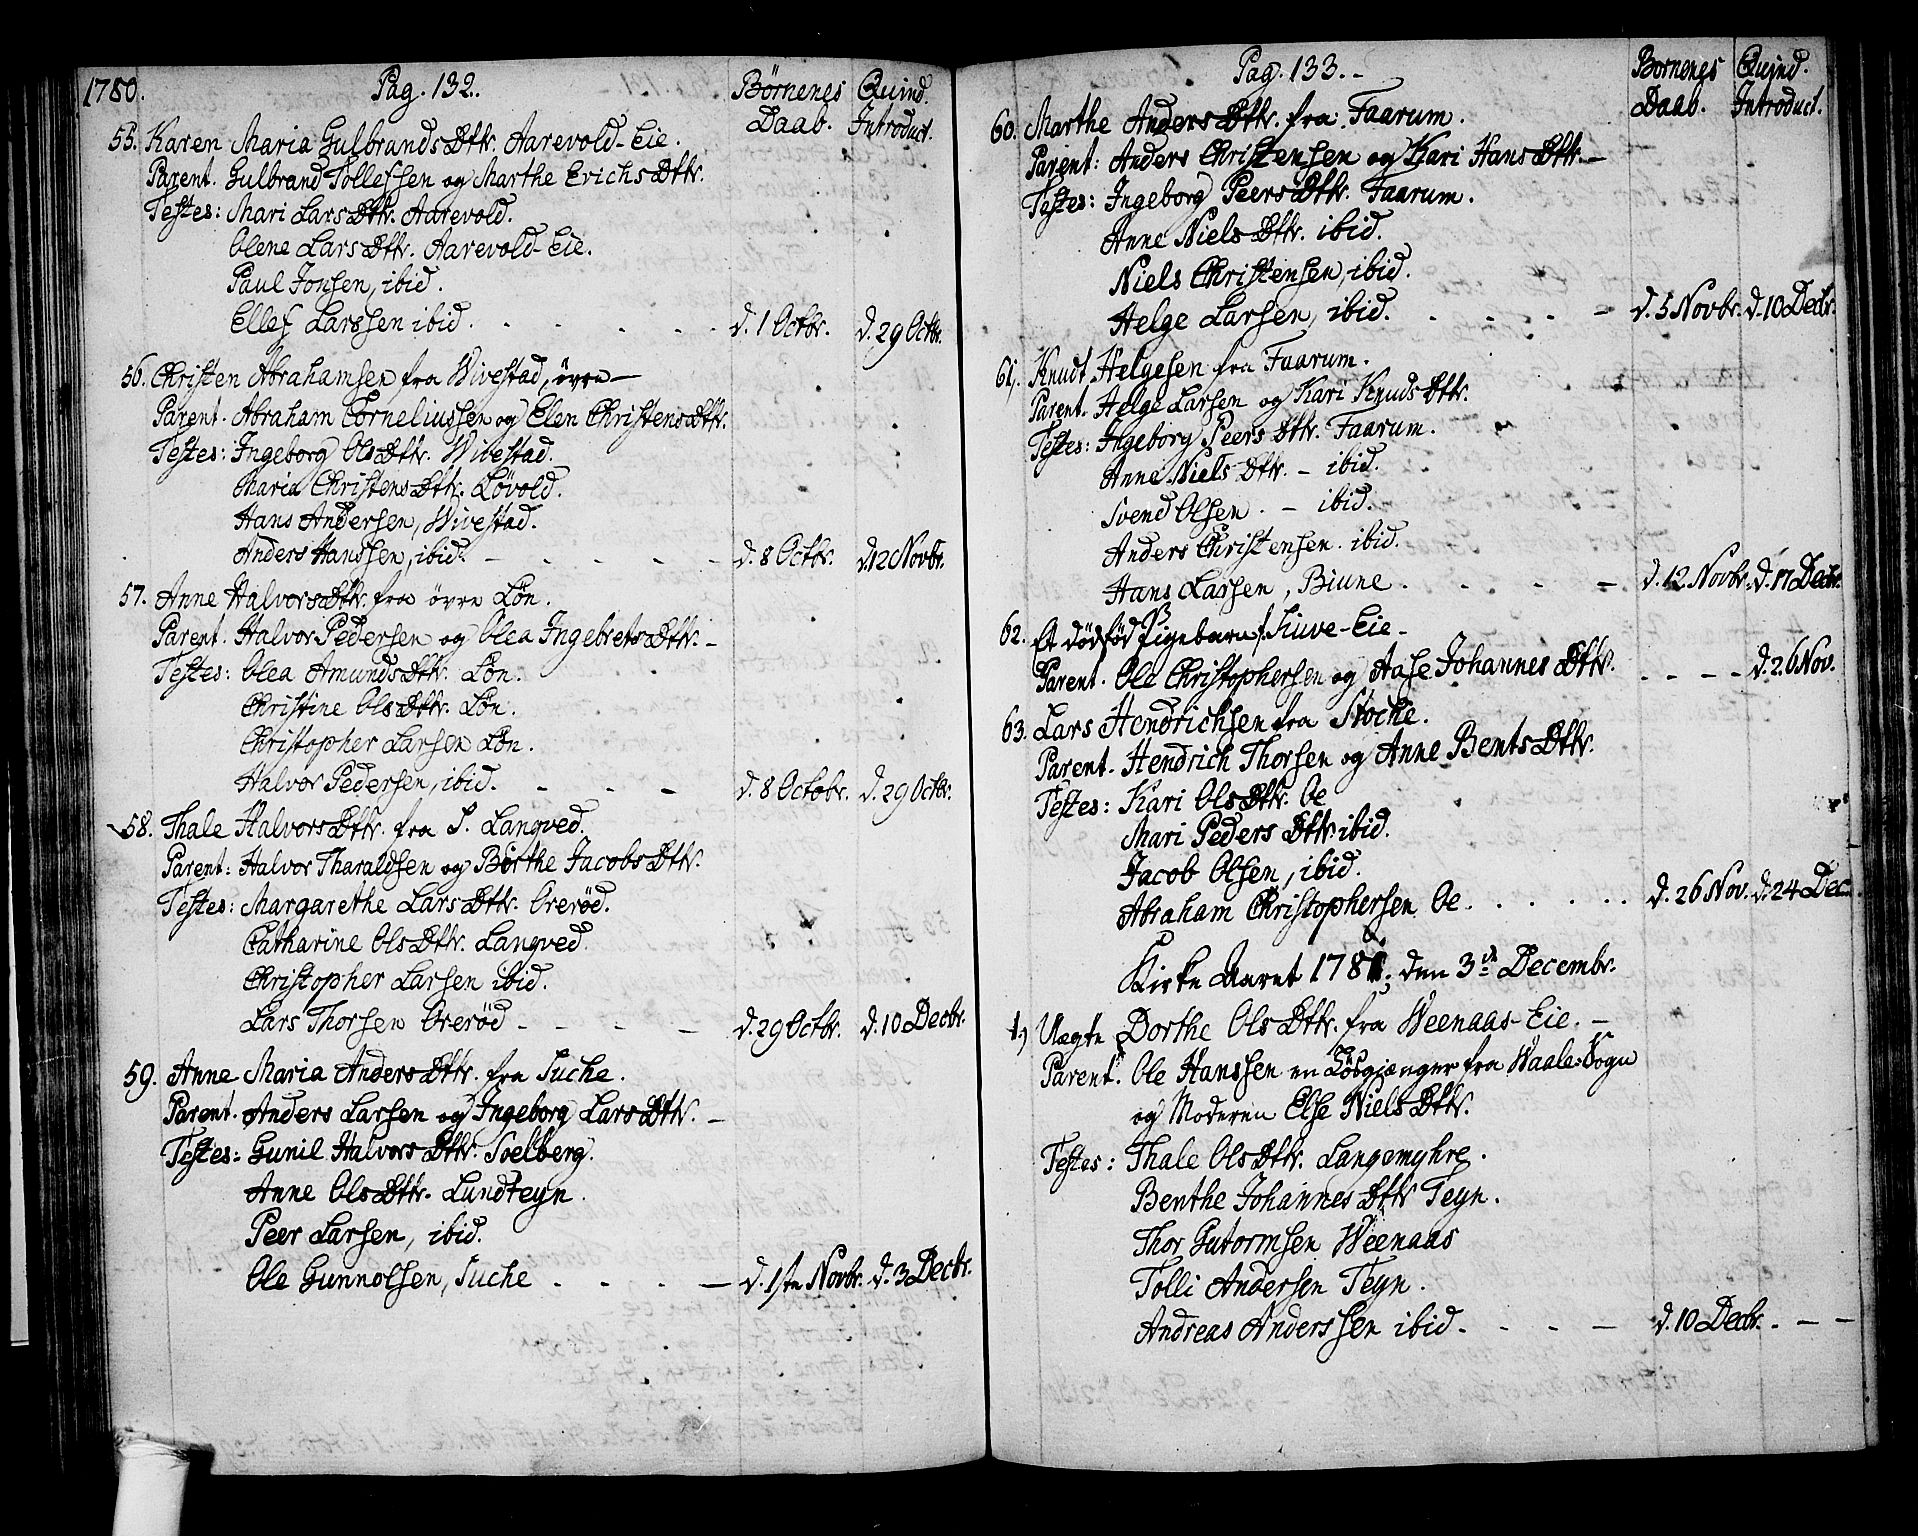 1780. Pag. 132. Børnenes Daab. Qvind. Introduct.
55. Karen Maria GulbrandsDttr. Aarevold-Eie.
Parent. Gulbrand Tollefsen og Marthe ErichsDttr.
Testes: Mari LarsDttr. Aarevold.
Olene LarsDttr. Aarevold-Eie.
Paul Jonsen, ibid.
Ellef Larssen ibid. d. 1 Octbr. d. 29 Octbr.
56. Christen Abrahamsen fra Wivestad, øvre
Parent. Abraham Corneliussen og Elen ChristensDttr.
Testes: Ingeborg OlsDttr. Wivestad.
Maria ChristensDttr. Løvold.
Hans Andersen, Wivestad.
Anders Hanssen, ibid. d. 8 Octbr. d. 12 Novbr.
57. Anne HalvorsDttr. fra øvre Løn.
Parent. Halvor Pedersen og Olea IngebretsDttr.
Testes: Olea AmundsDttr. Løn.
Christine OlsDttr. Løn.
Christopher Larsen Løn.
Halvor Pedersen, ibid. d. 8 Octobr. d. 29 Octbr.
58. Thale HalvorsDttr. fra S. Langved.
Parent: Halvor Tharaldsen og Berthe JacobsDttr.
Testes: Margarethe LarsDttr. Orerød.
Catharine OlsDttr. Langved.
Christopher Larsen ibid.
Lars Thorsen Orerød d. 29 Octbr. d. 10 Decbr.
59. Anne Maria AndersDttr. fra Suche.
Parent. Anders Larsen og Ingeborg LarsDttr.
Testes: Gunil HalvorsDttr. Soelberg.
Anne OlsDttr. Lundteyn.
Peer Larsen, ibid.
Ole Gunnolsen, Suche d. 1ste Novbr. d. 3 Decbr.
Pag. 133. Børnenes Daab. Qvind. Introduct.
60. Marthe AndersDttr. fra Faarum.
Parent: Anders Christensen og Kari HansDttr.
Testes: Ingeborg PeersDttr. Faarum.
Anne NielsDttr. ibid.
Niels Christensen, ibid.
Helge Larsen, ibid. d. 5 Novbr. d. 10 Decbr.
61. Knudt Helgesen fra Faarum.
Parent. Helge Larsen og Kari KnudsDttr.
Testes: Ingeborg PeersDttr. Faarum.
Anne NielsDttr. - ibid.
Svend Olsen. - ibid.
Anders Christensen. ibid.
Hans Larsen, Biune. d. 12 Novbr. d. 17 Decbr.
62. Et dødfød Pigebarn f. Siuve-Eie
Parent. Ole Christophersen og Aase JohannesDttr. d. 26 Nov.
63. Lars Hendrichsen fra Stocke.
Parent. Hendrich Thorsen og Anne BentsDttr.
Testes: Kari OlsDttr. Oe
Mari PedersDttr ibid.
Jacob Olsen, ibid.
Abraham Christophersen Oe. d. 26 Nov. d. 24 Dec
Kirke Aaret 1781. den 3de Decembr.
1.) Uægte Dorthe OlsDttr. fra Weenaas-Eie.
Parent. Ole Hanssen en Løsgjænger fra Waale Sogn
og Moderen Else NielsDttr.
Testes: Thale OlsDttr. Langemyhre.
Benthe JohannesDttr Teyn.
Thor Gutormsen Weenaas
Tolli Andersen Teyn.
Andreas Anderssen ibid. d. 10 Decbr.